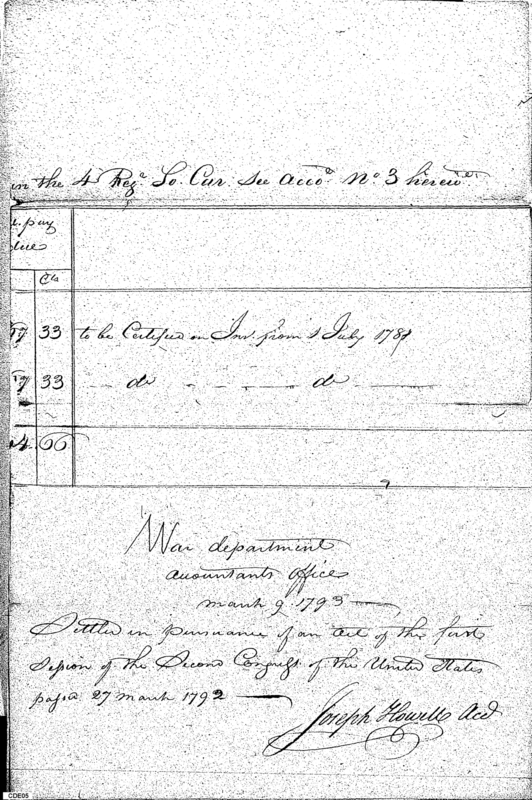 in the 4 Reg.t So. Car. see acco.t No. 3 herew.th
t. pay
due
Cts
57 33 to be Certified on Int. from 1 July 178
57 33 do do
4.66
War department
accountants office
march 9 1793
Settled in pursuance of an act of the first
Session of the Second Congress of the United States
passed 27 march 1792
Joseph Howell Acct
CDE05